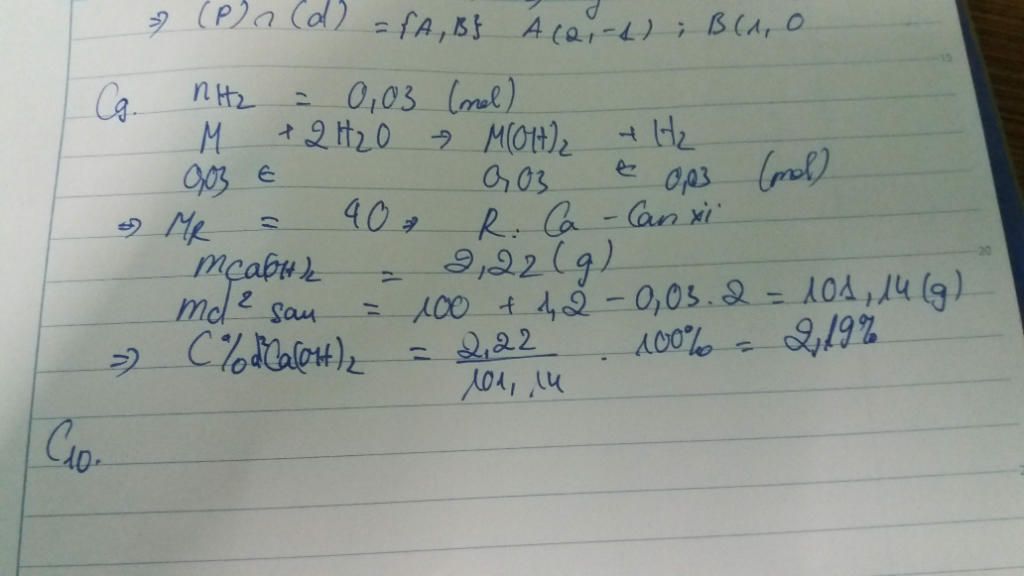 ⇒ (P) ∩ (d) = {A, B} A(2, -1) ; B(1, 0
15
C9. nH2 = 0,03 (mol)
M + 2H2O → M(OH)2 + H2
0,03 ← 0,03 ← 0,03 (mol)
⇒ MR = 40 ⇒ R: Ca - Canxi
mCa(OH)2 = 2,22 (g)
20
md2 sau = 100 + 1,2 - 0,03.2 = 101,14 (g)
⇒ C% d2Ca(OH)2 = 2,22 / 101,14 . 100% = 2,19%
C10.